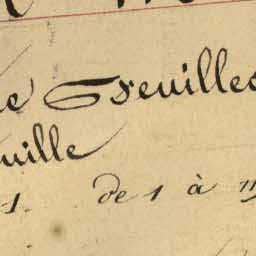 e Feuilles
uille
1 de 1 à